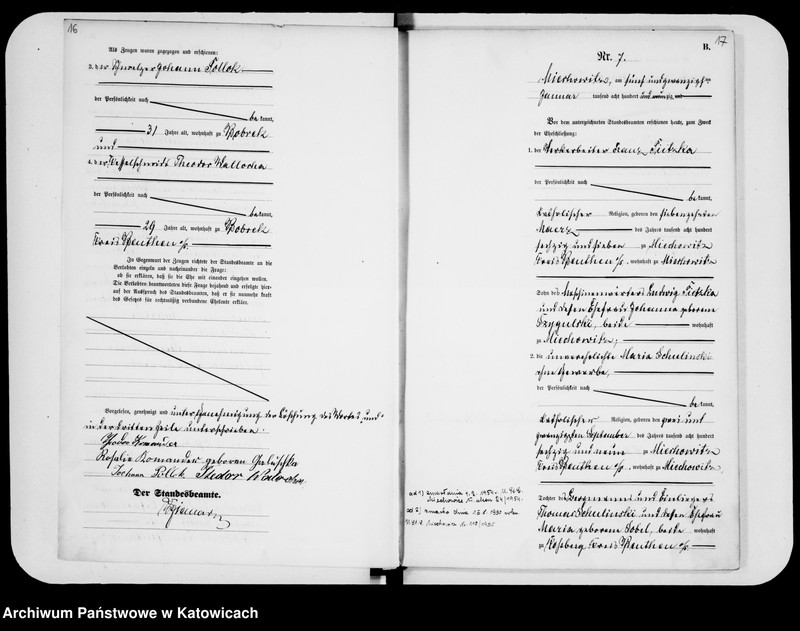 16
Als Zeugen waren zugezogen und erschienen:
3. der Schmelzer Johann Pollok
der Persönlichkeit nach
be kannt,
31 Jahre alt, wohnhaft zu Bobrek
und
4. der Kesselschmied Theodor Walloska
der Persönlichkeit nach
be kannt,
29 Jahre alt, wohnhaft zu Bobrek
Kreis Beuthen O/S.
In Gegenwart der Zeugen richtete der Standesbeamte an die
Verlobten einzeln und nacheinander die Frage:
ob sie erklären, daß sie die Ehe mit einander eingehen wollen.
Die Verlobten beantworteten diese Frage bejahend und erfolgte hier-
auf der Ausspruch des Standesbeamten, daß er sie nunmehr kraft
des Gesetzes für rechtmäßig verbundene Eheleute erkläre.
Vorgelesen, genehmigt und unter Genehmigung der Löschung des Wortes "und"
in der dritten Zeile unterschrieben.
Komander
Rosalie Komander geborene Galuschka
Johann Pollok Theodor
Der Standesbeamte.
17
B.
Nr. 7.
Miechowitz, am fünf und zwanzigsten
Januar tausend acht hundert und neunzig
Vor dem unterzeichneten Standesbeamten erschienen heute, zum Zweck
der Eheschließung:
1. der Werkarbeiter Franz Fitzka
der Persönlichkeit nach
be kannt,
katholischer Religion, geboren den siebenzehnten
Maerz des Jahres tausend acht hundert
sechzig und sieben zu Miechowitz
Kreis Beuthen O/S., wohnhaft zu Miechowitz
Sohn des Maschinenwärters Ludwig Fitzka
und dessen Ehefrau Johanna geborene
Szygulski, beide wohnhaft
zu Miechowitz;
2. die unverehelichte Maria Schulinski
ohne Gewerbe,
der Persönlichkeit nach
be kannt,
katholischer Religion, geboren den zwei und
zwanzigsten September des Jahres tausend acht hundert
sechzig und neun zu Miechowitz
Kreis Beuthen O/S., wohnhaft zu Miechowitz
Tochter des Bergmanns und Einliegers
Thomas Schulinski und dessen Ehefrau
Maria geborene Sobel, beide wohnhaft
zu Roßberg Kreis Beuthen O/S.
Archiwum Państwowe w Katowicach